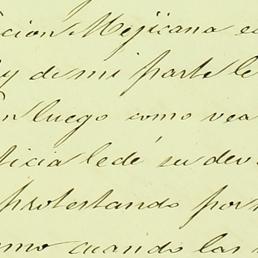 cion Mejicana e
y de mi parte le
n luego como vea
ticia le dé su dev
protestando por
omo cuando las